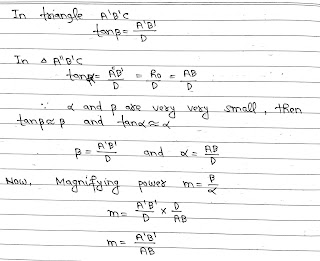 In triangle A'B'C
tanβ = A'B'/D
In △ A"B'C
tanα = A"B'/D = /D = AB/D
∵ α and β are very very small, then
tanβ≈β and tanα≈α
β = A'B'/D and α = AB/D
Now, Magnifying power m = β/α
m = A'B'/D × D/AB
m = A'B'/AB